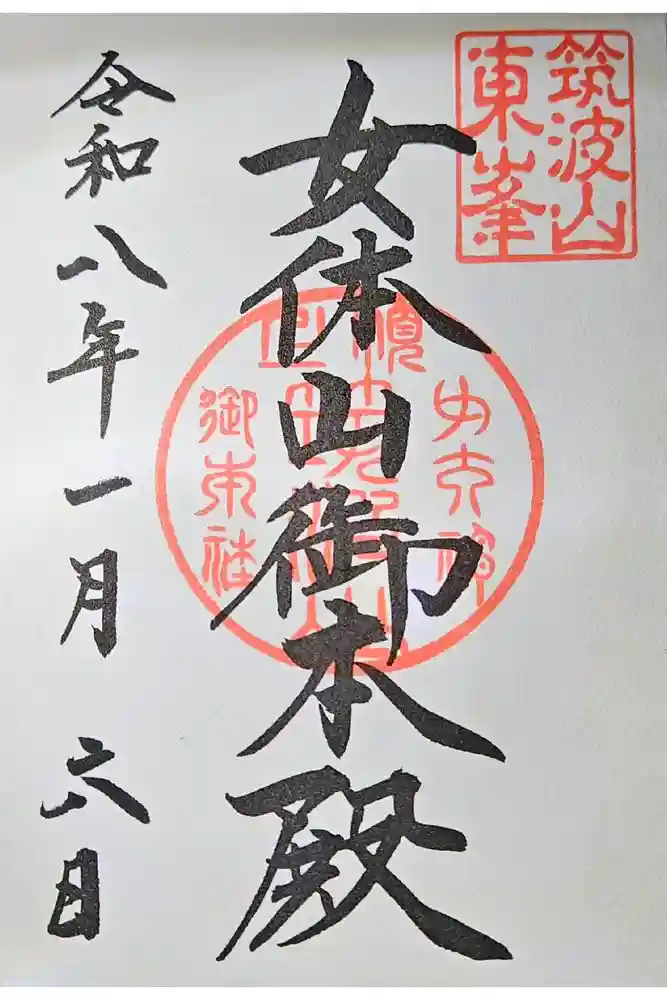 筑波山
東峯
女体山御本殿
令和八年一月六日
御本社